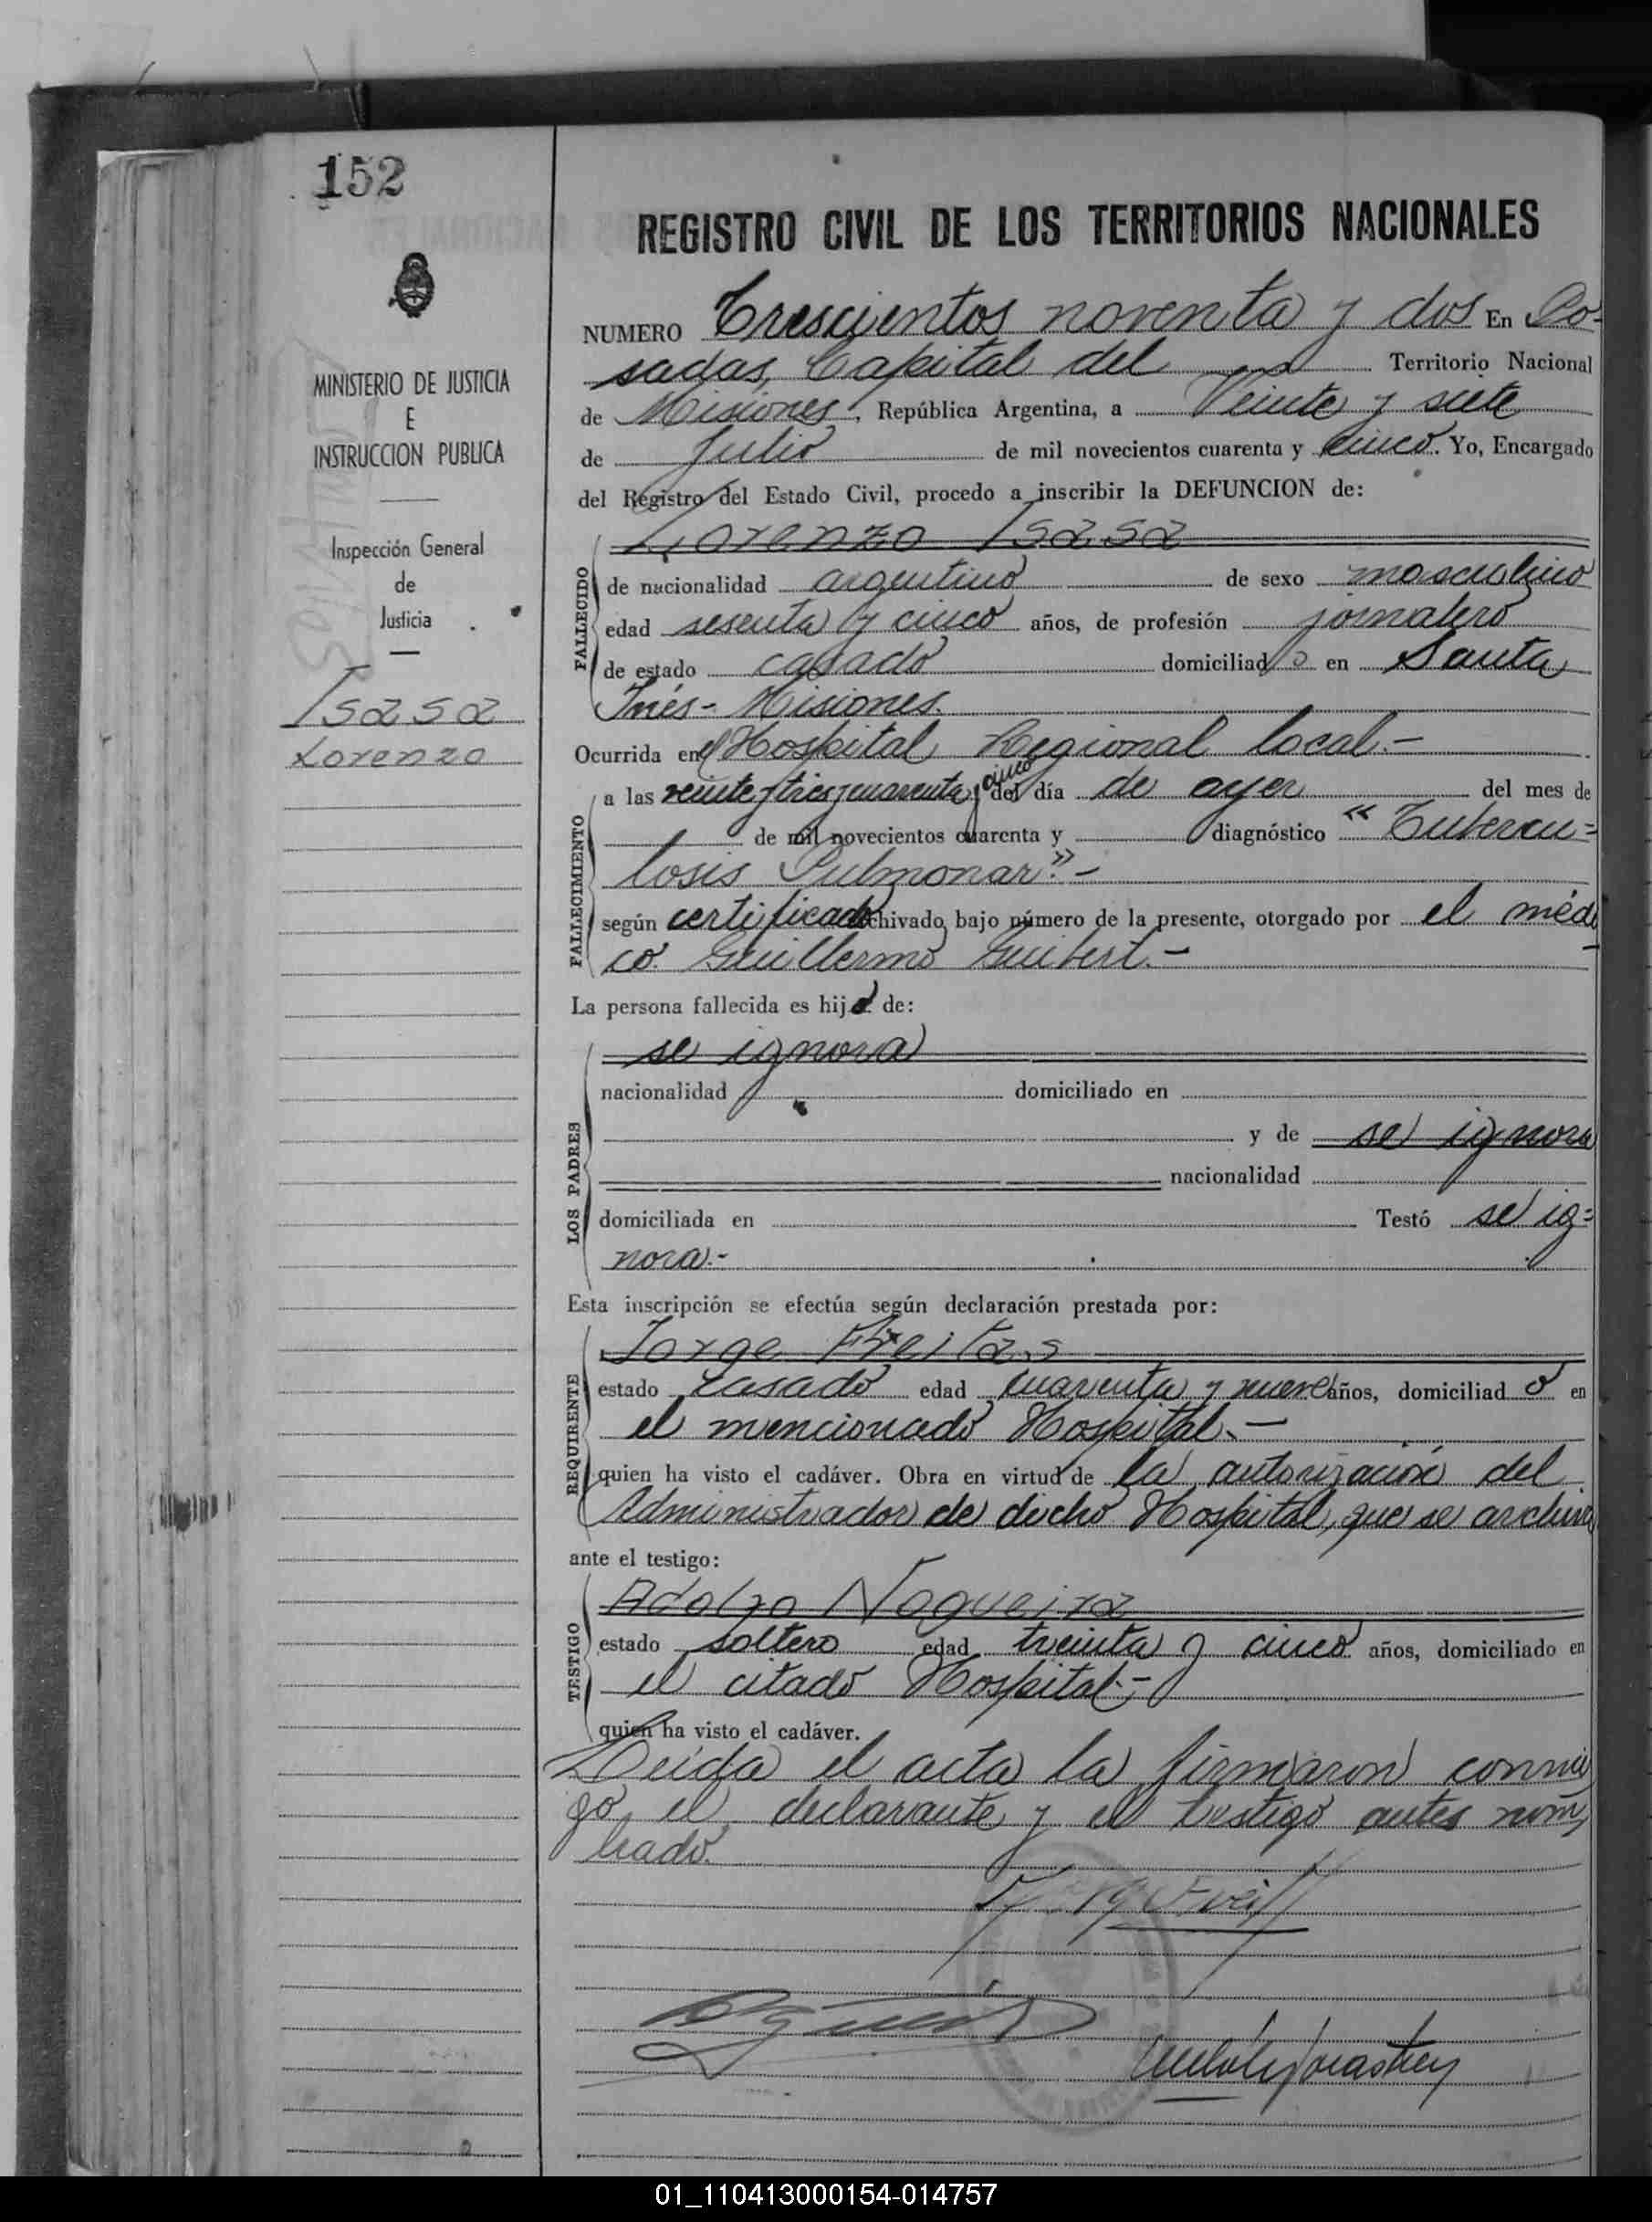 152
MINISTERIO DE JUSTICIA
E
INSTRUCCION PUBLICA
Inspección General
de
Justicia
Isasa
Lorenzo
REGISTRO CIVIL DE LOS TERRITORIOS NACIONALES
NUMERO Trescientos noventa y dos En Po-
sadas, Capital del Territorio Nacional
de Misiones, República Argentina, a Veinte y siete
de Julio de mil novecientos cuarenta y cinco. Yo, Encargado
del Registro del Estado Civil, procedo a inscribir la DEFUNCION de:
Lorenzo Isasa
FALLECIDO
de nacionalidad argentino de sexo masculino
edad sesenta y cinco años, de profesión jornalero
de estado casado domiciliado en Santa
Inés - Misiones.
Ocurrida en el Hospital Regional local.-
FALLECIMIENTO
a las veinte y tres y cuarenta y cinco del día de ayer del mes de
de mil novecientos cuarenta y diagnóstico "Tubercu=
losis Pulmonar".-
según certificado archivado bajo número de la presente, otorgado por el médi
co Guillermo Guibert.-
La persona fallecida es hijo de:
LOS PADRES
se ignora
nacionalidad domiciliado en
y de se ignora
nacionalidad
domiciliada en Testó se ig=
nora.-
Esta inscripción se efectúa según declaración prestada por:
REQUIRENTE
Jorge Freitas
estado casado edad cuarenta y nueve años, domiciliado en
el mencionado Hospital.-
quien ha visto el cadáver. Obra en virtud de la autorización del
Administrador de dicho Hospital, que se archiva
ante el testigo:
TESTIGO
Adolfo Nogueira
estado soltero edad treinta y cinco años, domiciliado en
el citado Hospital.-
quien ha visto el cadáver.
Leída el acta la firmaron conmi
go el declarante y el testigo antes nom
brado.
01_110413000154-014757